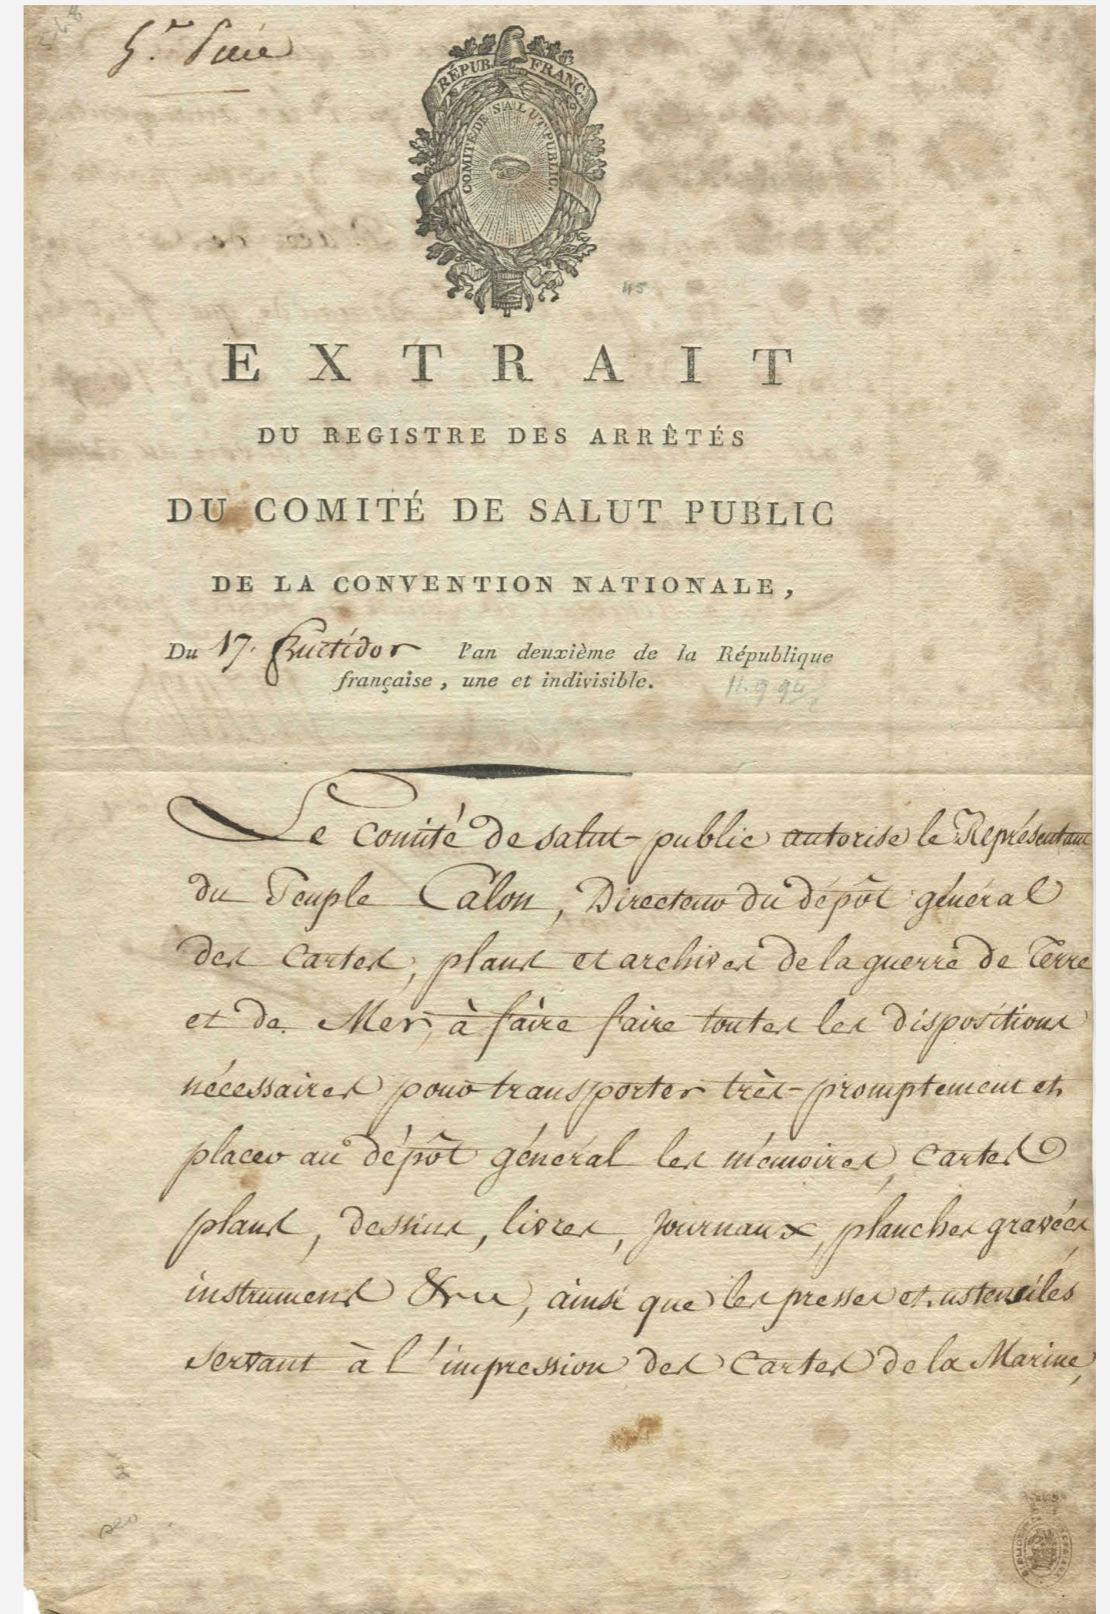 548
RÉPUB. FRANÇ.
COMITÉ DE SALUT PUBLIC.
45
EXTRAIT
DU REGISTRE DES ARRÊTÉS
DU COMITÉ DE SALUT PUBLIC
DE LA CONVENTION NATIONALE,
Du 17. fructidor l'an deuxième de la République
française, une et indivisible.
Le Comité de salut-public autorise le Représentant
du Peuple Calon, Directeur du dépôt général
des Cartes, plans et archives de la guerre de Terre
et de Mer, à faire faire toutes les dispositions
nécessaires pour transporter très-promptement et
placer au dépôt général les mémoires, cartes
plans, dessins, livres, journaux, planches gravées,
instrumens &c, ainsi que les presses et ustensiles
servant à l'impression des Cartes de la Marine,